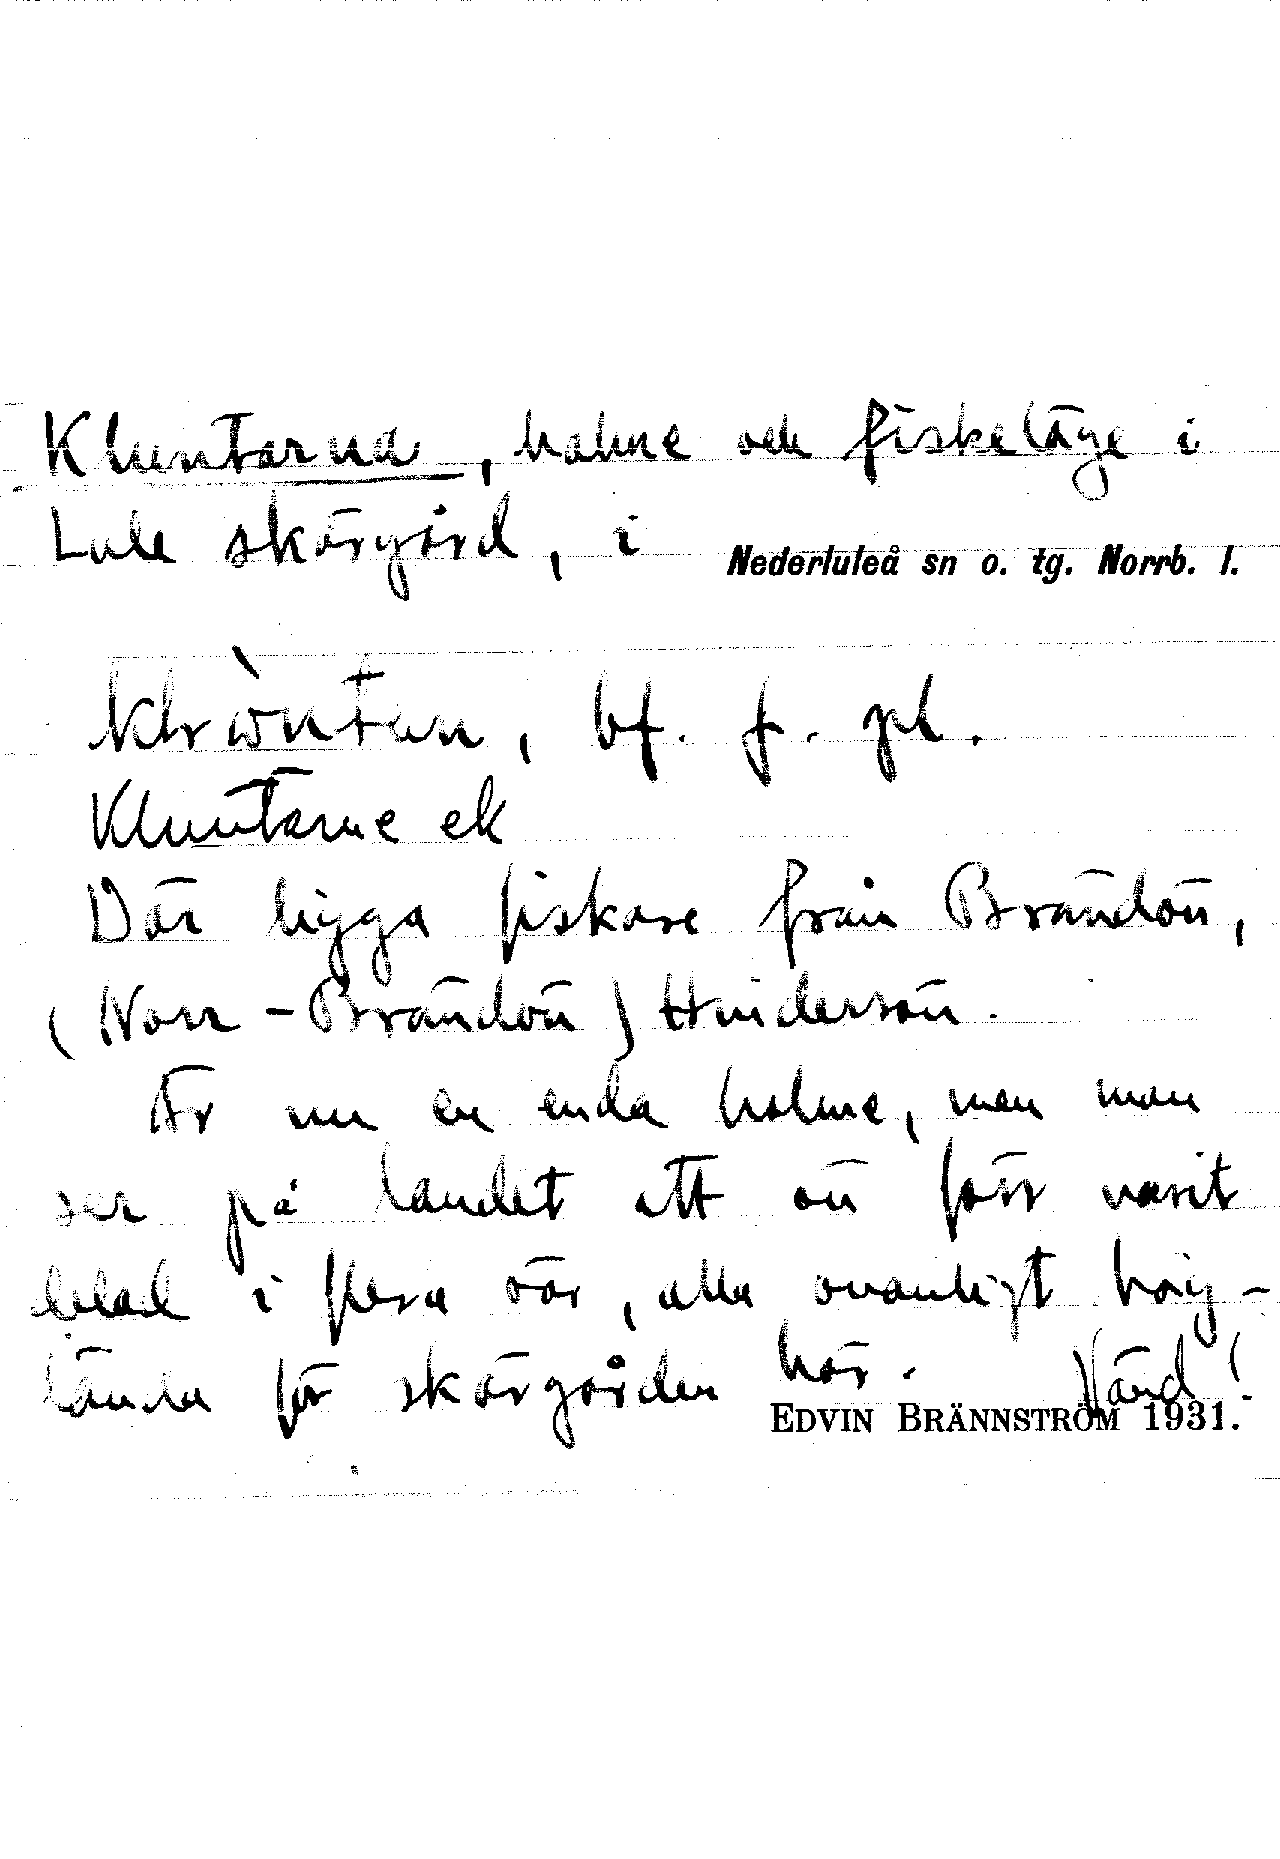 Kluntarna, holme och fiskeläge i
Lule skärgård, i Nederluleå sn o. tg. Norrb. l.
bf. f. pl.
Kluntarne ek
Där ligga fiskare från Brändön,
(Norr-Brändön) Hindersön.
Är nu en enda holme, men man
ser på landet att ön förr varit
delad i flera öar, alla ovanligt hög-
lända för skärgården här. Vänd!
EDVIN BRÄNNSTRÖM 1931.